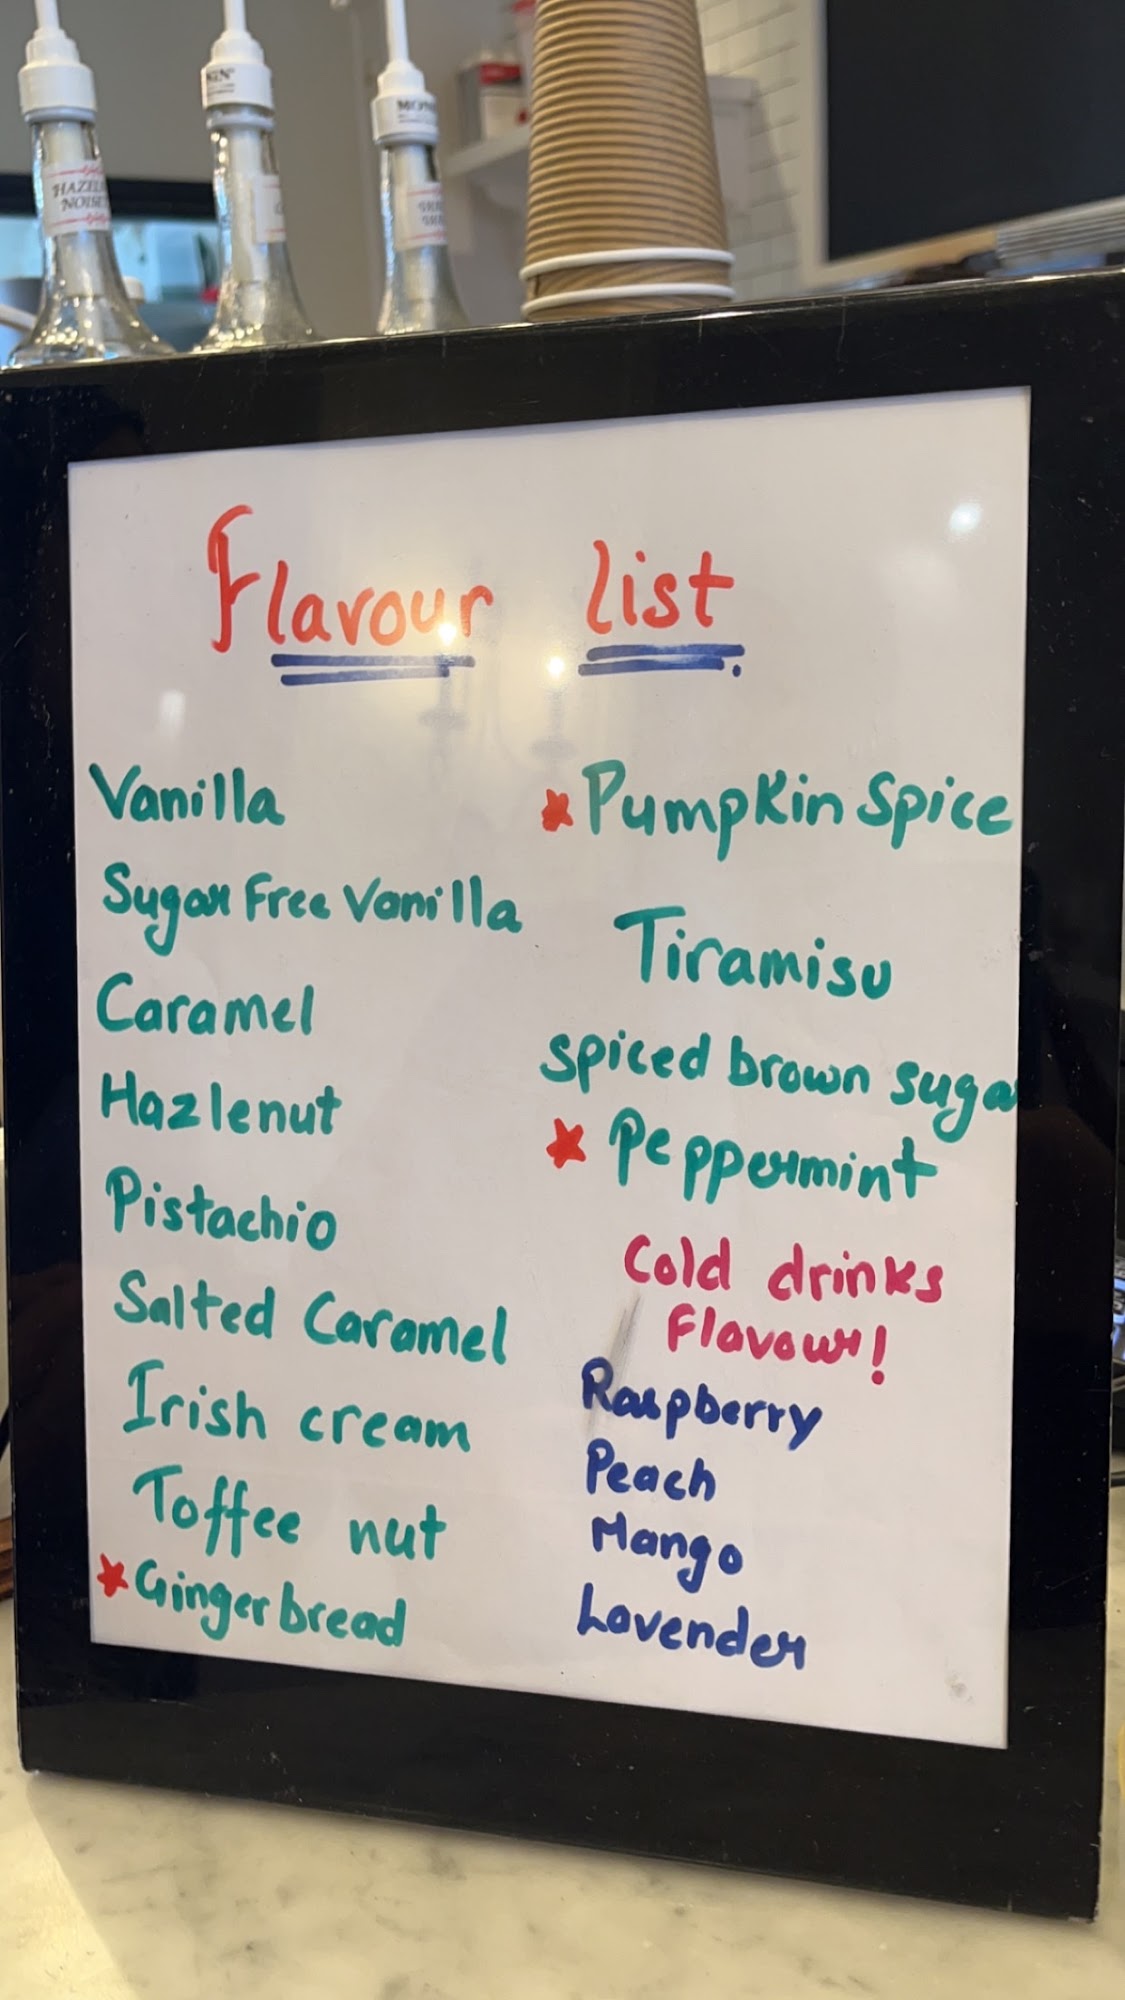 HAZEL
NOISET
MON
Flavour list
Vanilla
Sugar Free Vanilla
Caramel
Hazlenut
Pistachio
Salted Caramel
Irish cream
Toffee nut
Gingerbread
Pumpkin Spice
Tiramisu
spiced brown sugar
Peppermint
Cold drinks
Flavour!
Raspberry
Peach
Mango
Lavender